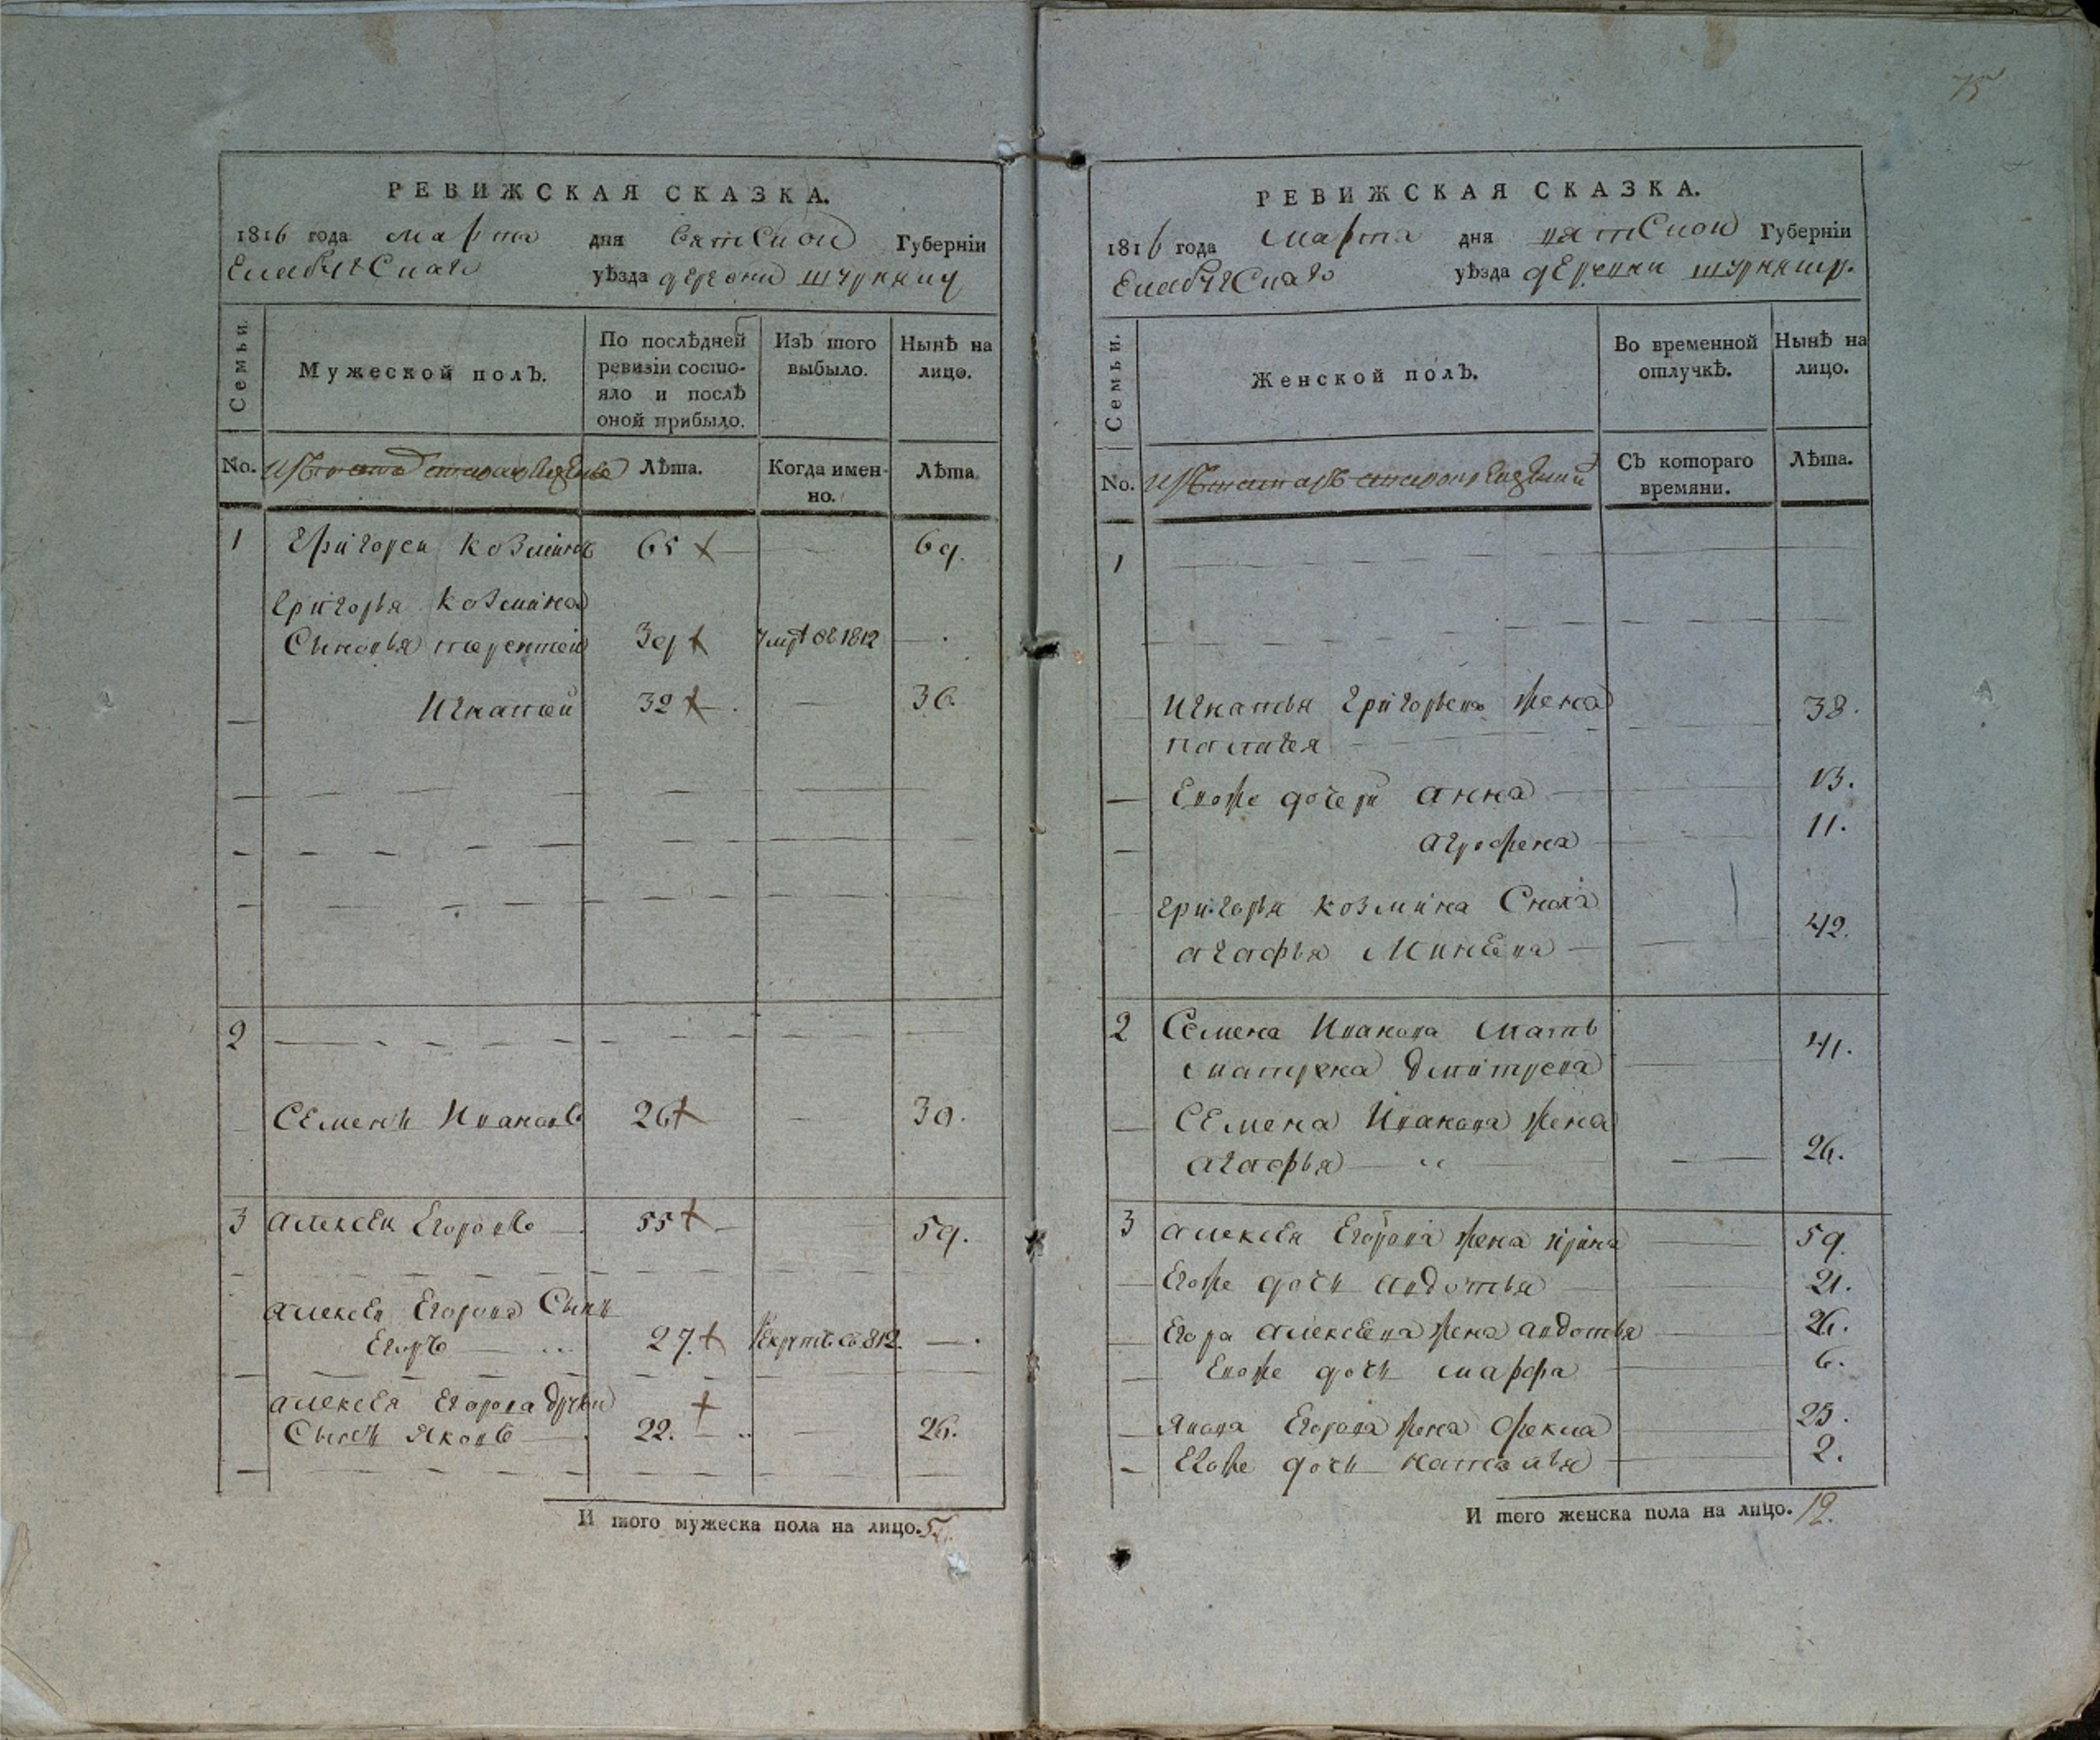 75
РЕВИЖСКАЯ СКАЗКА.
1816 года марта дня вятской Губерніи
Елабугскаго уѣзда деревни шурняку
Семьи.
Мужеской полъ.
По послѣдней ревизіи состо-
яло и послѣ
оной прибыло.
Изъ того
выбыло.
Нынѣ на
лицо.
No.
Лѣта.
Когда имен-
но.
Лѣта.
1 Григореи козминъ 65 69.
Григорья козмина
Сыновья терентеи 39 умре в 1812
Игнатеи 32 36
2
Семенъ Ивановъ 26 30.
3 алексеи Егоровъ 55 59.
алексея Егорова Сынъ
Егоръ 27. рекрутъ въ 812.
алексея Егорова другои
Сынъ Яковъ 22. 26.
И того мужеска пола на лицо. 5.
РЕВИЖСКАЯ СКАЗКА.
1816 года марта дня вятской Губерніи
Елабугскаго уѣзда деревни шурняку.
Семьи.
Женской полъ.
Во временной
отлучкѣ.
Нынѣ на
лицо.
No.
Съ котораго
времяни.
Лѣта.
1
Игнатья Григорьева жена 38.
палагея
Евоже дочери анна 13.
агрофена 11.
григорья козмина Сноха
агафья Минеева 42.
2 Семена Иванова мать
матрена дмитрева 41.
Семена Иванова жена
агафья 26.
3 алексея Егорова жена ирина 59.
Егоже дочь авдотья 21.
Егора алексеева жена авдотья 26.
Евоже дочь марфа 6.
Якова Егорова жена Фекла 25.
Егоже дочь наталья 2.
И того женска пола на лицо. 12.